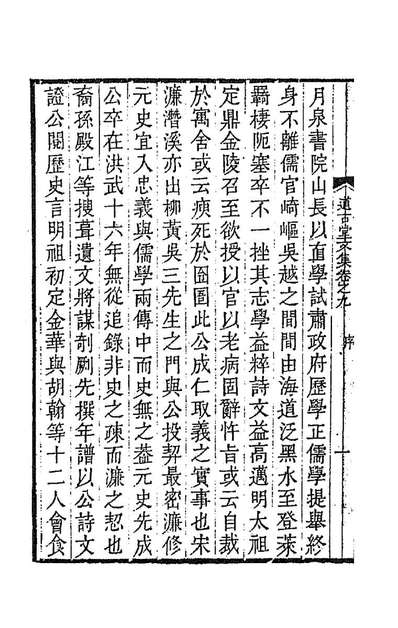 月泉書院山長以直學試肅政府歷學正儒學提舉終
身不離儒官崎嶇吳越之間間由海道泛黑水至登萊
羈棲阨塞卒不一挫其志學益粹詩文益高邁明太祖
定鼎金陵召至欲授以官以老病固辭忤旨或云自裁
於寓舍或云瘐死於囹圄此公成仁取義之實事也宋
濂潛溪亦出柳黃吳三先生之門與公投契最密濂修
元史宜入忠義與儒學兩傳中而史無之葢元史先成
公卒在洪武十六年無從追錄非史之疎而濂之恝也
裔孫殿江等搜葺遺文將謀剞劂先撰年譜以公詩文
證公閱歷史言明祖初定金華與胡翰等十二人會食
道古堂文集卷之九
序
一